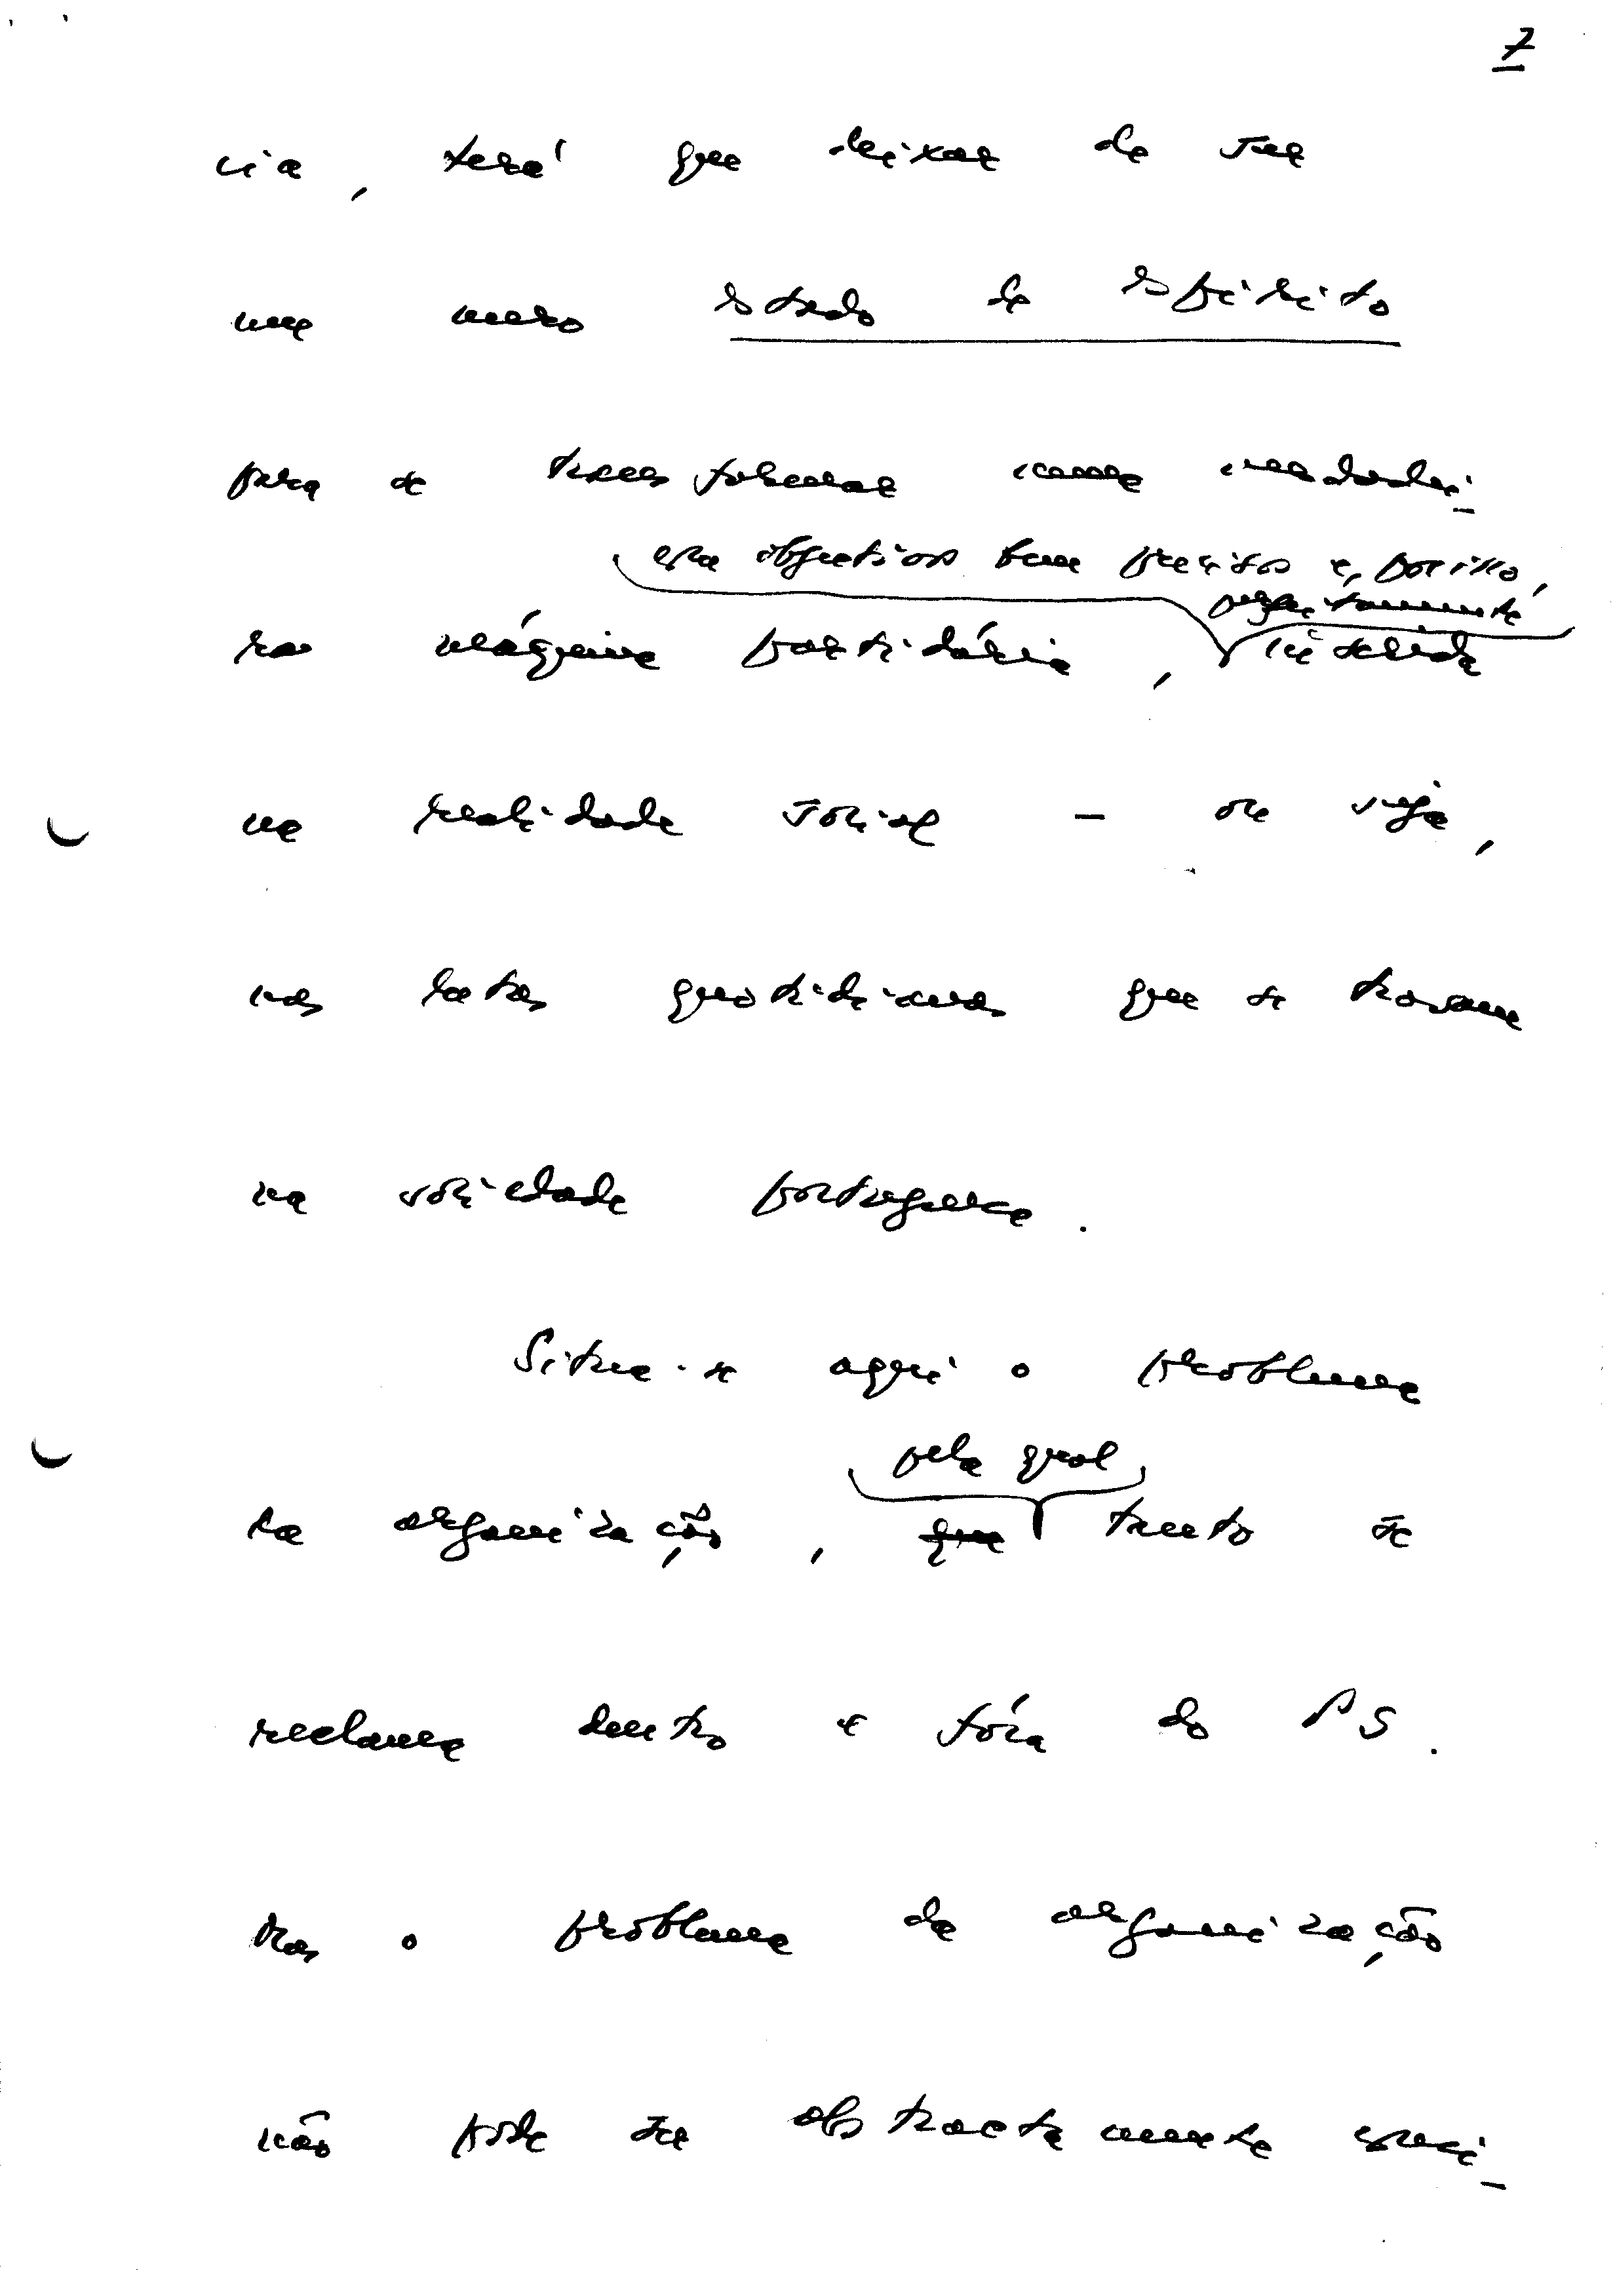 7
cia, terá que deixar de ser
um mero estado de espírito
para se transformar numa verdadei-
com objectivos bem precisos e, por isso,
perfeitamente
ra máquina partidária, inserida
na realidade social - ou seja,
nas lutas quotidianas que se travam
na sociedade portuguesa.
Situa-se aqui o problema
pela qual
da organização, que tanto se
reclama dentro e fóra do PS.
Mas o problema da organização
não pode ser abstractamente enunci-